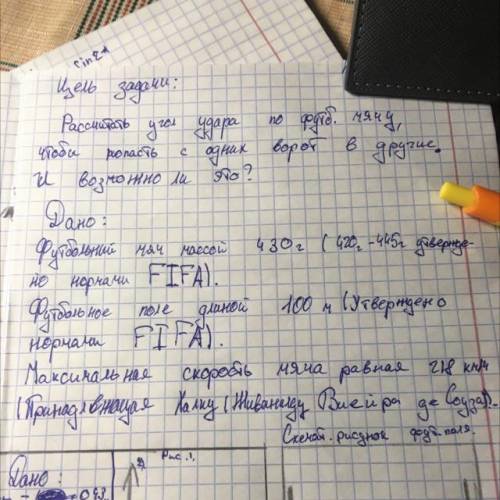 sin2α
Цель задачи:
Рассчитать угол удара по футб. мячу,
чтобы попасть с одних ворот в другие.
И возможно ли это?
Дано:
Футбольный мяч массой 430г (420г-445г утвержде-
но нормами FIFA).
Футбольное поле длиной 100 м (Утверждено
нормами FIFA).
Максимальная скорость мяча равная 218 км/ч
(Принадлежащая Халку (Живанилду Виейра де Соуза).
Схемат. рисунок футб. поля.
Рис.1.
Дано: